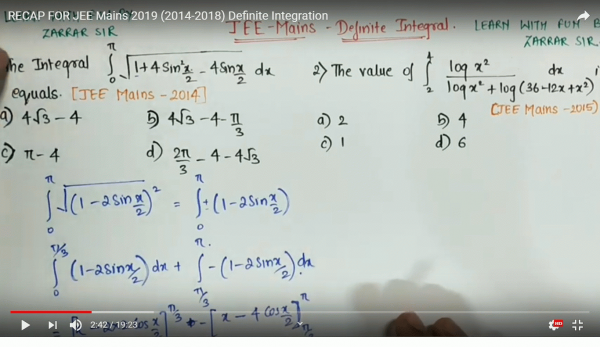 RECAP FOR JEE Mains 2019 (2014-2018) Definite Integration
ZARRAR SIR
JEE-Mains - Definite Integral.
LEARN WITH FUN B
ZARRAR SIR.
he Integral ∫₀^π √(1+4Sin²x/2 - 4Sinx/2) dx
equals. [JEE Mains - 2014]
a) 4√3 - 4 b) 4√3 - 4 - π/3
c) π - 4 d) 2π/3 - 4 - 4√3
2) The value of ∫₂⁴ log x² / (log x² + log (36 - 12x + x²)) dx i
(JEE Mains - 2015)
a) 2 b) 4
c) 1 d) 6
∫₀^π √(1 - 2Sinx/2)² = ∫₀^π ± (1 - 2Sinx/2)
∫₀^π/3 (1 - 2Sinx/2) dx + ∫π/3^π - (1 - 2Sinx/2) dx
]^π/3 - [x - 4Cosx/2]^π
2:42 / 19:23
HD